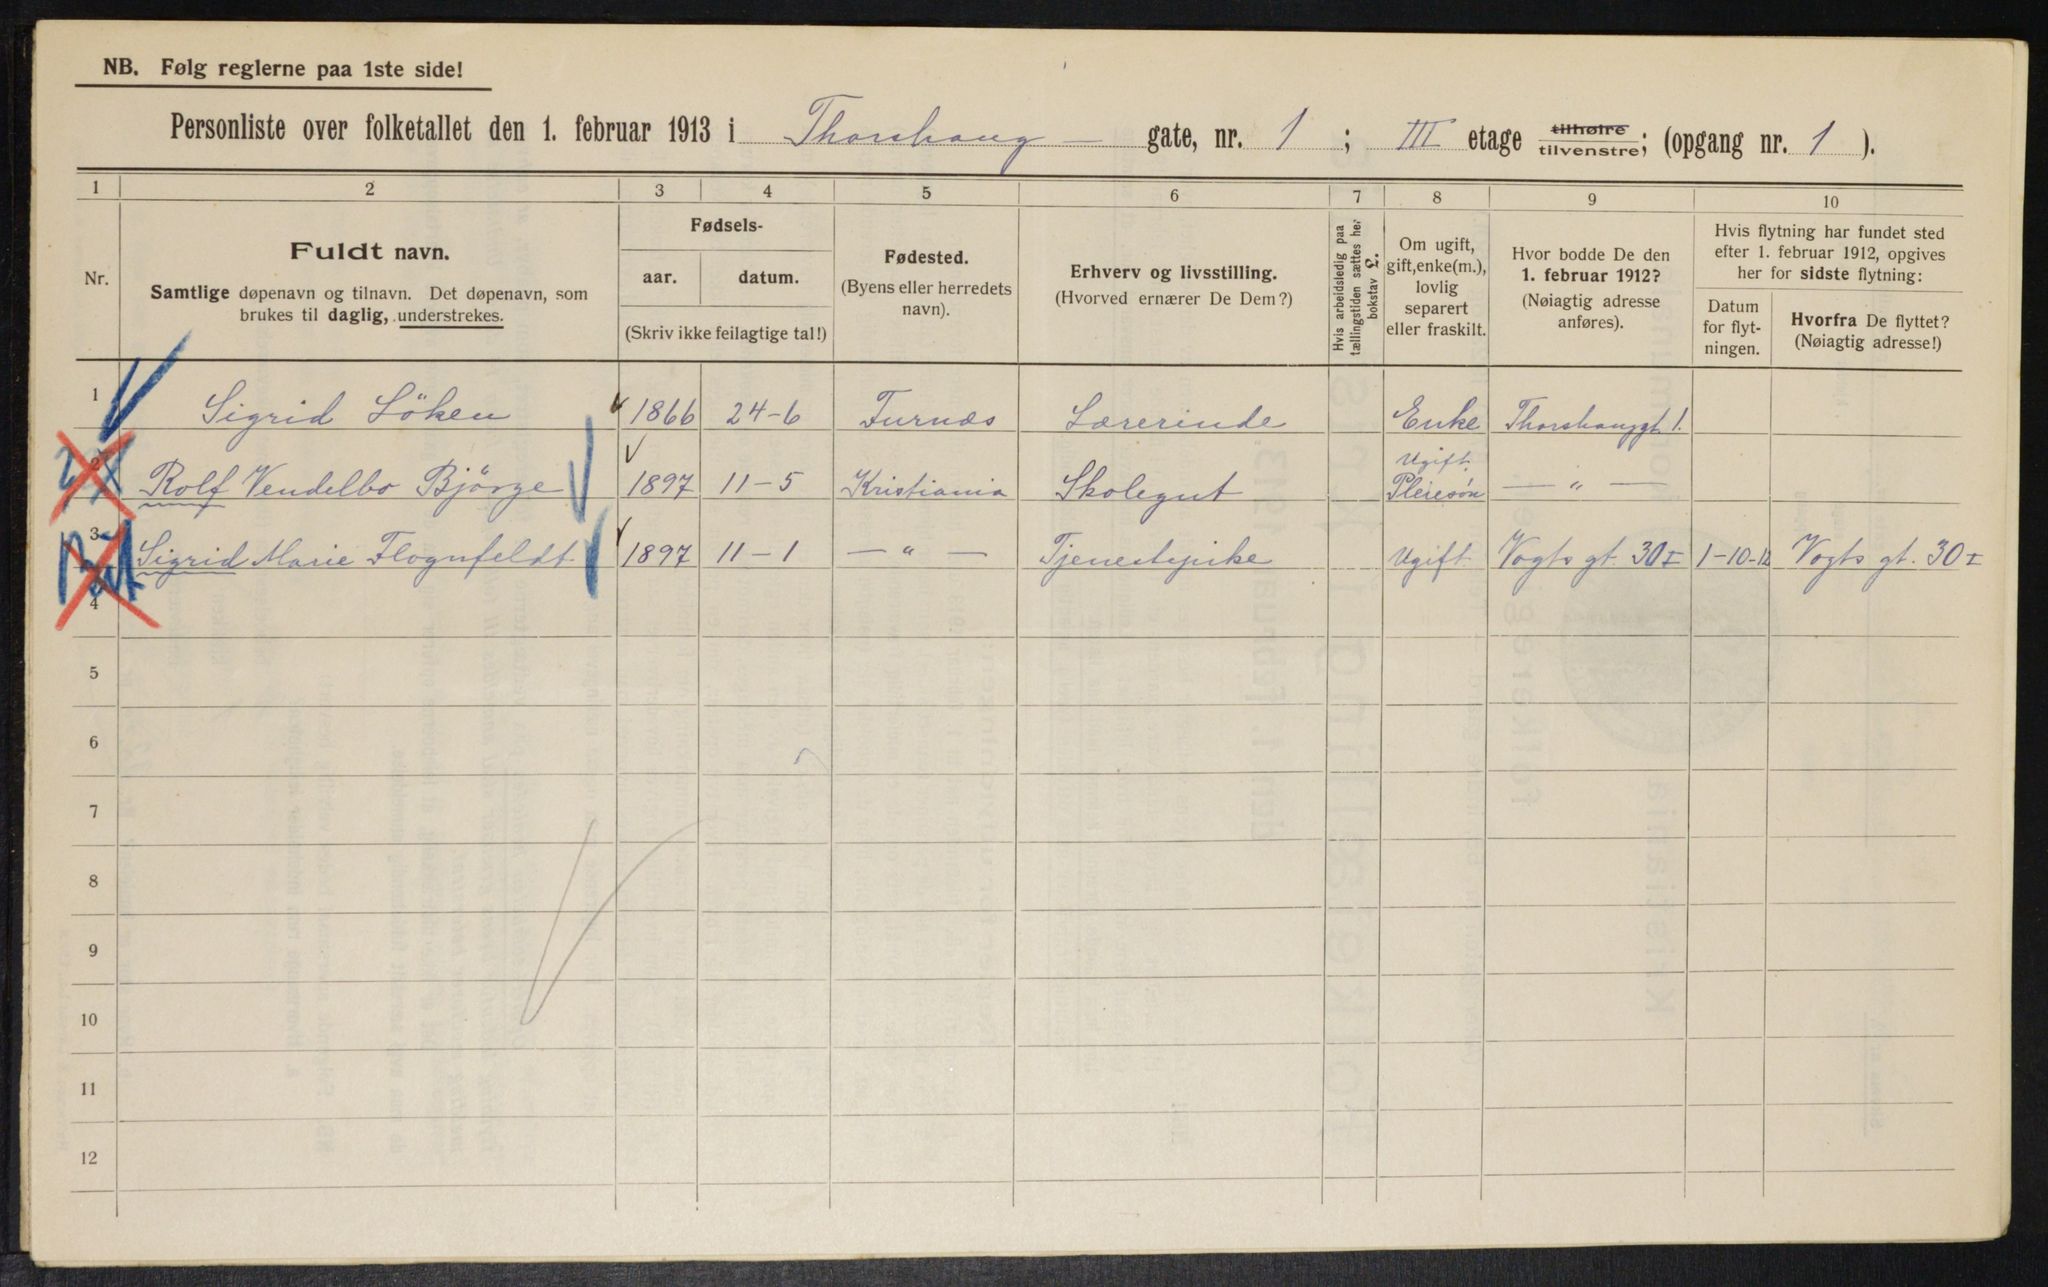 NB. Følg reglerne paa 1ste side!
Personliste over folketallet den 1. februar 1913 i Thorshaug — gate, nr. 1 ; III etage tilhøire tilvenstre; (opgang nr. 1 ).
1 2 3 4 5 6 7 8 9 10
Nr.
Fuldt navn.
Samtlige døpenavn og tilnavn. Det døpenavn, som
brukes til daglig, understrekes.
Fødsels-
aar. datum.
(Skriv ikke feilagtige tal!)
Fødested.
(Byens eller herredets
navn).
Erhverv og livsstilling.
(Hvorved ernærer De Dem?)
Hvis arbeidsledig paa
tællingstiden sættes her
bokstav L.
Om ugift,
gift, enke(m.),
lovlig
separert
eller fraskilt.
Hvor bodde De den
1. februar 1912?
(Nøiagtig adresse
anføres).
Hvis flytning har fundet sted
efter 1. februar 1912, opgives
her for sidste flytning:
Datum
for flyt-
ningen.
Hvorfra De flyttet?
(Nøiagtig adresse!)
1 Sigrid Löken 1866 24-6 Furnæs Lærerinde Enke Thorshauggt. 1.
2 Rolf Vendelbo Bjørge 1897 11-5 Kristiania Skolegut Ugift. Pleiesøn — " —
3 Sigrid Marie Flognfeldt 1897 11-1 — " — Tjenestepike Ugift Vogts gt. 30 I 1-10-12 Vogts gt. 30 I
4
5
6
7
8
9
10
11
12